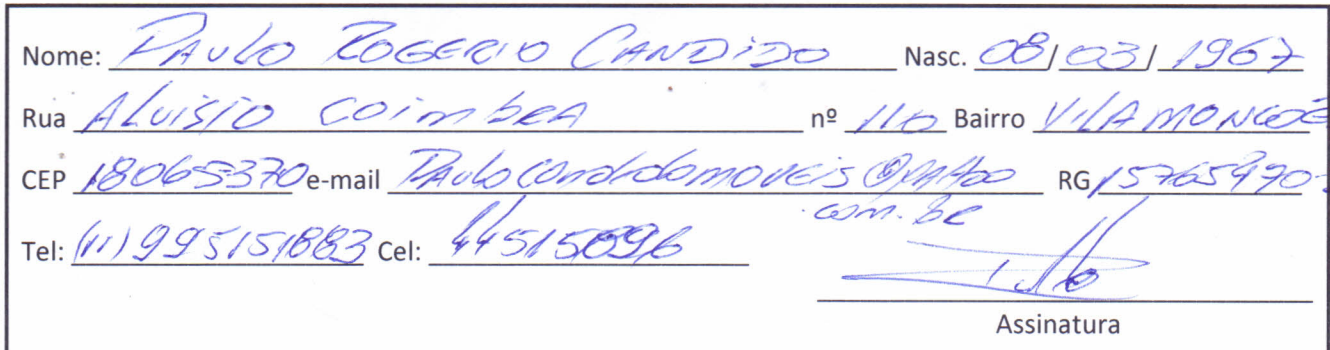 Nome: PAULO ROGERIO CANDIDO Nasc. 08/03/1967
Rua ALUISIO COIMBRA nº 110 Bairro VILA MONCOÉ
CEP 18065370 e-mail PAulocandidomoveis@YAHoo RG 15765990-
.com.br
Tel: (11) 995151883 Cel: 44515696
Assinatura